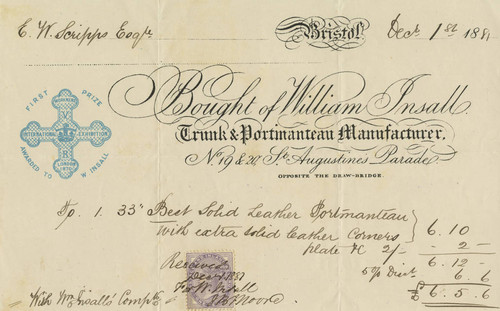 E. W. Scripps Esqre
Bristol, Dec 1st 188
Bought of William Insall.
Trunk & Portmanteau Manufacturer.
No. 19 & 20, St. Augustine's Parade.
OPPOSITE THE DRAW-BRIDGE.
FIRST PRIZE
V R
INTERNATIONAL EXHIBITION
LONDON
AWARDED TO W INSALL
To 1. 33" Best Solid Leather Portmanteau
with extra solid leather corners 6.10
plate &c 2/- - 2 -
6.12 -
5% Disct 6.6
£6.5.6
Received
Dec
For W. Insall
Moore
With Wm Insall's Compts